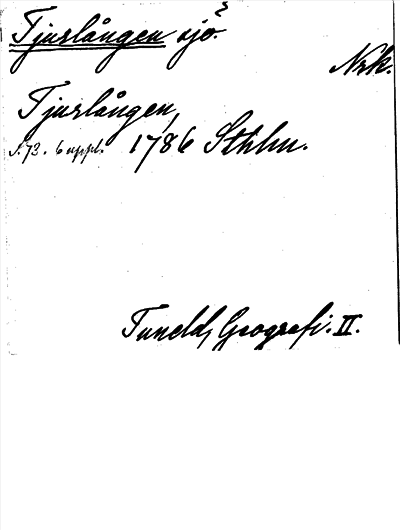 Tjurlången sjö. ?
Nrk.
Tjurlången,
s. 73. 6 uppl. 1786 Sthlm.
Tuneld, Geografi. II.